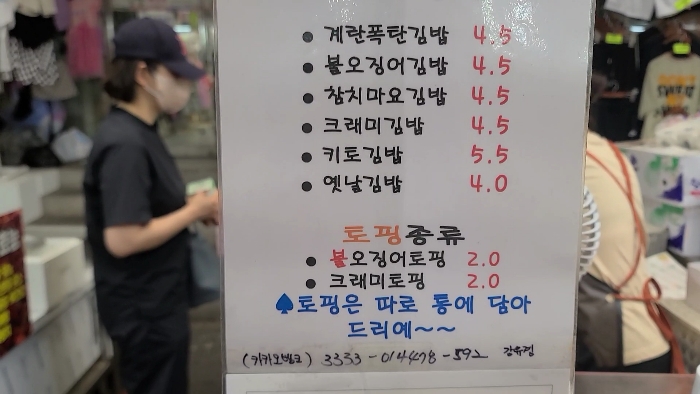 ● 계란폭탄김밥 4.5
● 불오징어김밥 4.5
● 참치마요김밥 4.5
● 크래미김밥 4.5
● 키토김밥 5.5
● 옛날김밥 4.0
토핑종류
● 불오징어토핑 2.0
● 크래미토핑 2.0
♠토핑은 따로 통에 담아
드리예~~
(카카오뱅크) 3333-014478-592 강유정